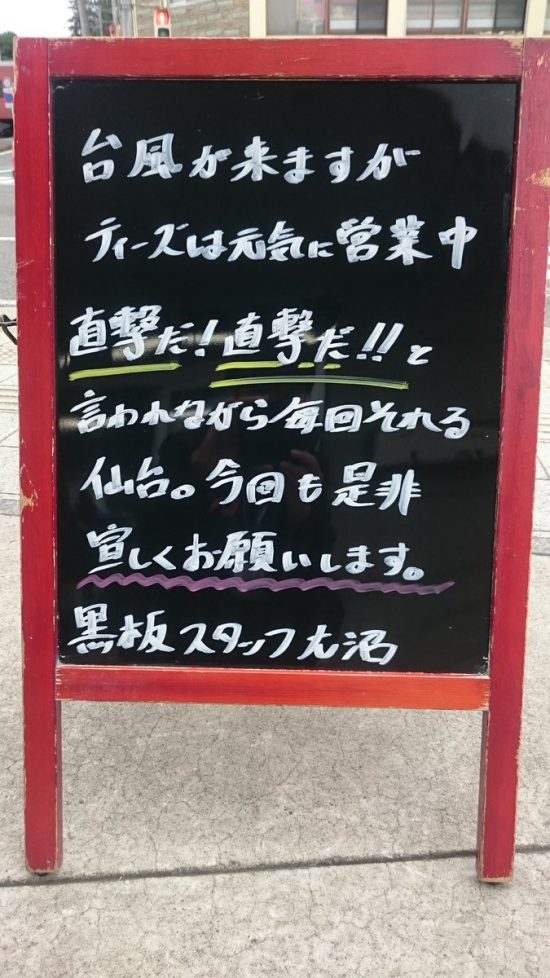 台風が来ますが
ティーズは元気に営業中
直撃だ!直撃だ!!と
言われながら毎回それる
仙台。今回も是非
宜しくお願いします。
黒板スタッフ大沼